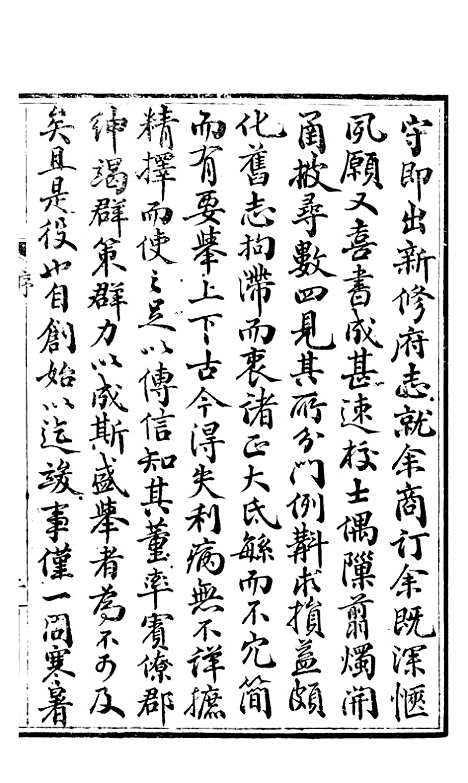 守即出新修府志就余商订余既深惬
夙願又喜書成甚速校士偶隟剪燭開
函披尋數四見其所分門例斟求損益頗
化舊志拘滯而衷諸正大氐繇而不冗簡
而有要舉上下古今得失利病無不詳摭
精擇而使之足以傳信知其董率賓僚郡
紳竭群策群力以成斯盛舉者為不可及
矣且是役也自創始以迄竣事僅一閱寒暑
序